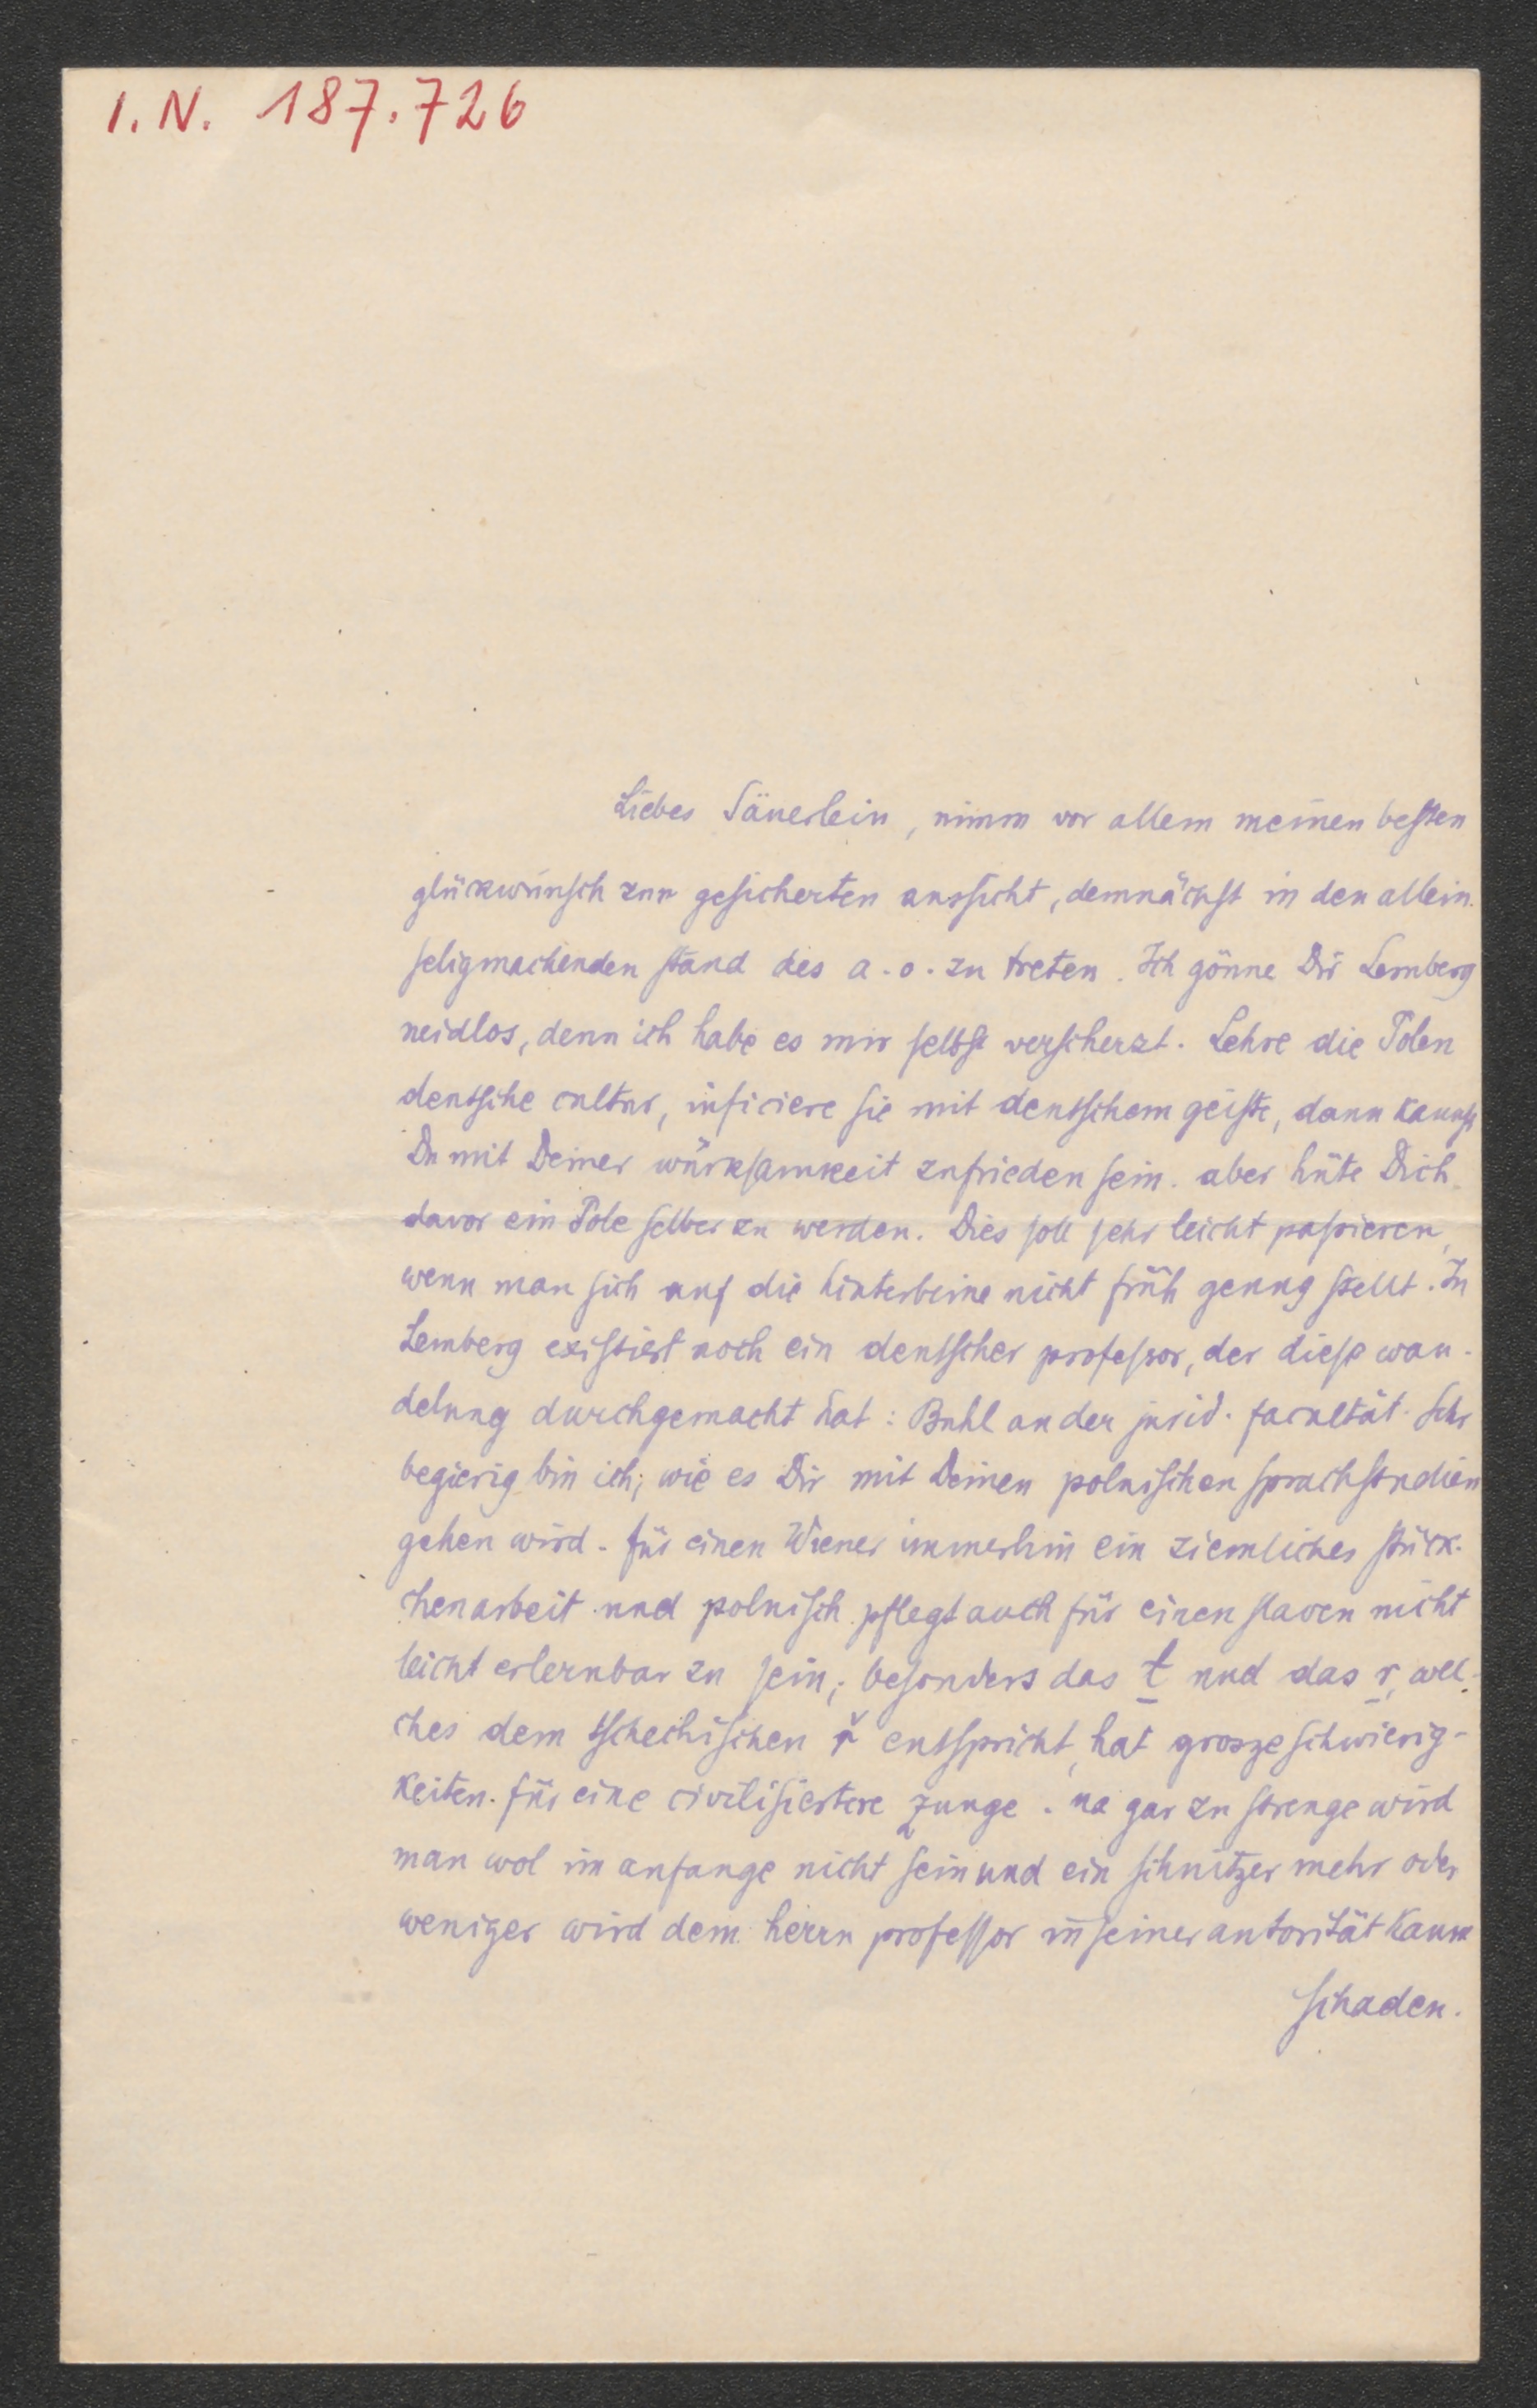 I. N. 187.726
Liebes Säuerlein, nimm vor allem meinen besten
glückwunsch zur gesicherten aussicht, demnächst in den allein
seligmachenden stand des a. o. zu treten. Ich gönne Dir Lemberg
neidlos, denn ich habe es mir selbst verscherzt. Lehre die Polen
deutsche cultur, inficiere sie mit deutschem geiste, dann kannst
Du mit Deiner würksamkeit zufrieden sein. aber hüte Dich
davor ein Pole selber zu werden. Dies soll sehr leicht passieren,
wenn man sich auf die hinterbeine nicht früh genug stellt. In
Lemberg existiert noch ein deutscher professor, der diese wan-
delung durchgemacht hat: Buhl an der jurid. facultät. Sehr
begierig bin ich, wie es Dir mit Deinen polnischen sprachstudien
gehen wird. für einen Wiener immerhin ein ziemliches stück-
chenarbeit und polnisch pflegt auch für einen slaven nicht
leicht erlernbar zu sein; besonders das ł und das r, wel-
ches dem tschechischen ř entspricht, hat grosze schwierig-
keiten. für eine civilisiertere zunge. na gar zu strenge wird
man wol im anfange nicht sein und ein schnitzer mehr oder
weniger wird dem herrn professor in seiner autorität kaum
schaden.